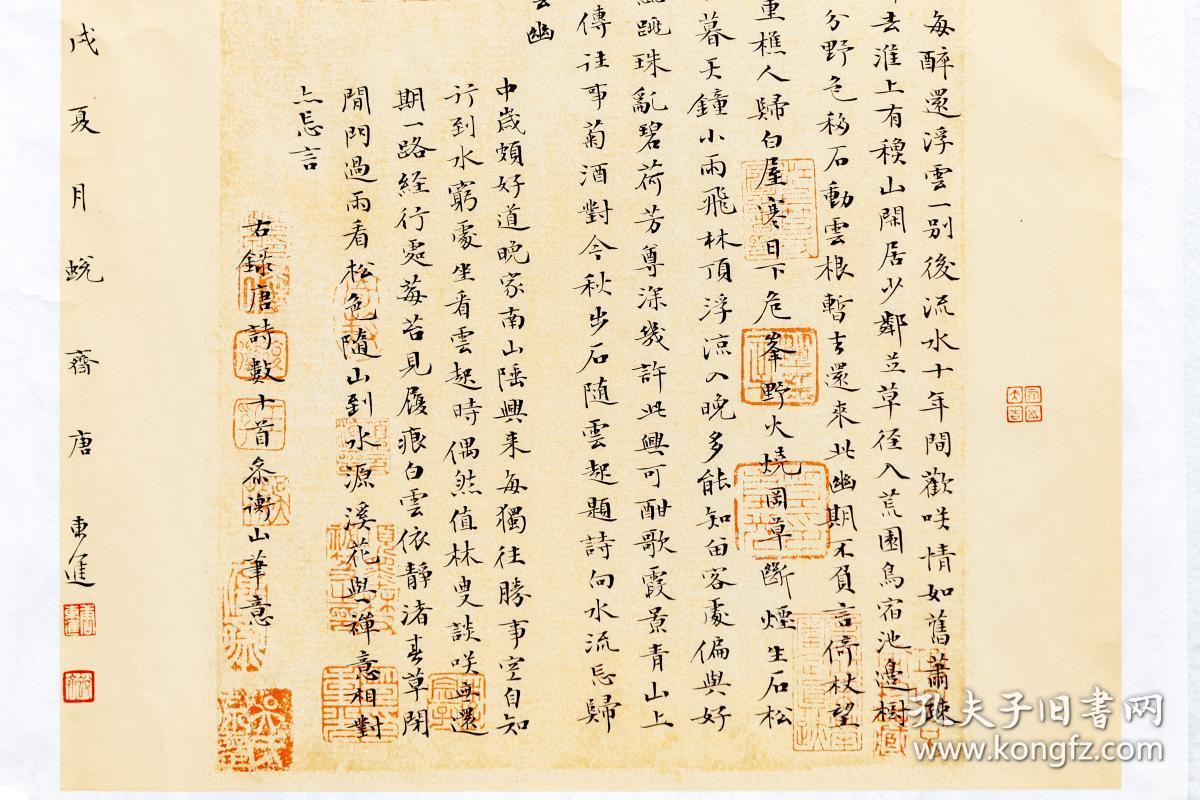 每醉還浮雲一別後流水十年間歡咲情如舊蕭疎
去淮上有穐山閑居少鄰竝草徑入荒園鳥宿池邊樹
分野色移石動雲根暫去還來此幽期不負言倚杖望
重樵人歸白屋寒日下危峯野火燒岡草斷煙生石松
暮天鐘小雨飛林頂浮涼入晚多能知留客處偏與好
跳珠亂碧荷芳尊深幾許此興可酣歌霞景青山上
傳往事菊酒對今秋步石隨雲起題詩向水流忘歸
雲幽
中歲頗好道晚家南山陲興來每獨往勝事空自知
行到水窮處坐看雲起時偶然值林叟談咲無還
期一路經行處莓苔見履痕白雲依靜渚春草閉
閒門過雨看松色隨山到水源溪花與禪意相對
亾忘言
右錄唐詩數十首条衡山筆意
戌夏月蛻齋唐東進
孔夫子旧书网
www.kongfz.com